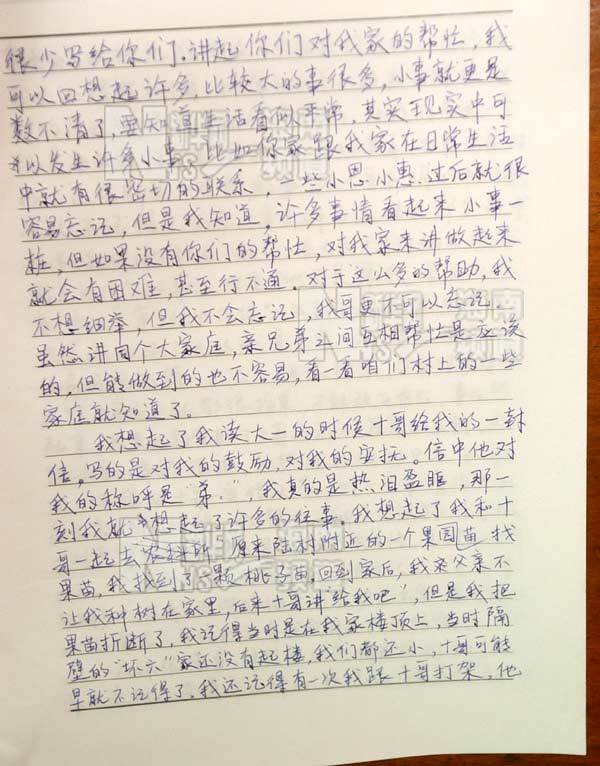 很少写给你们.讲起你们对我家的帮忙,我
可以回想起许多,比较大的事很多,小事就更是
数不清了,要知道生活看似平常,其实现实中可
以发生许多小事,比如你家跟我家在日常生活
中就有很密切的联系,一些小恩小惠.过后就很
容易忘记,但是我知道,许多事情看起来小事一
桩,但如果没有你们的帮忙,对我家来讲做起来
就会有困难,甚至行不通.对于这么多的帮助,我
不想细举,但我不会忘记,我哥更不可以忘记.
虽然讲同个大家庭,亲兄弟之间互相帮忙是应该
的,但能做到的也不容易,看一看咱们村上的一些
家庭就知道了。
我想起了我读大一的时候十哥给我的一封
信。写的是对我的鼓励,对我的安抚。信中他对
我的称呼是“弟.”,我真的是热泪盈眶,那一
刻我就想起了许多的往事.我想起了我和十
哥一起去农科所,原来陆村附近的一个果园苗找
果苗,我找到了一颗桃子苗,回到家后,我父亲不
让我种树在家里,后来十哥讲“给我吧”,但是我把
果苗折断了,我记得当时是在我家楼顶上,当时隔
壁的“坏六”家还没有起楼,我们都还小,十哥可能
早就不记得了.我还记得有一次我跟十哥打架,他